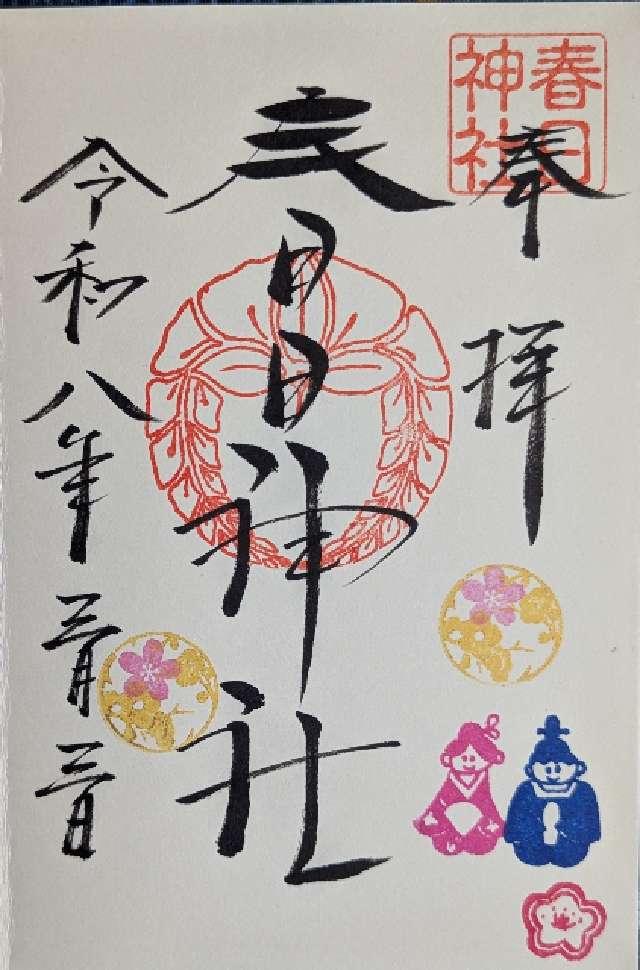 奉拝
春日神社
春日神社
令和八年三月三日